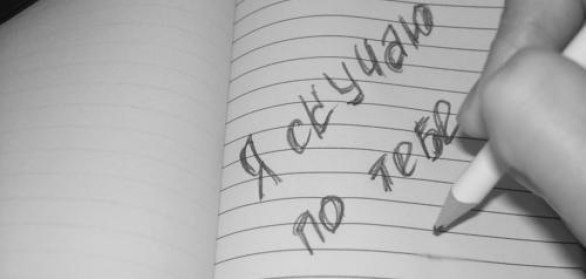 Я скучаю
по тебе